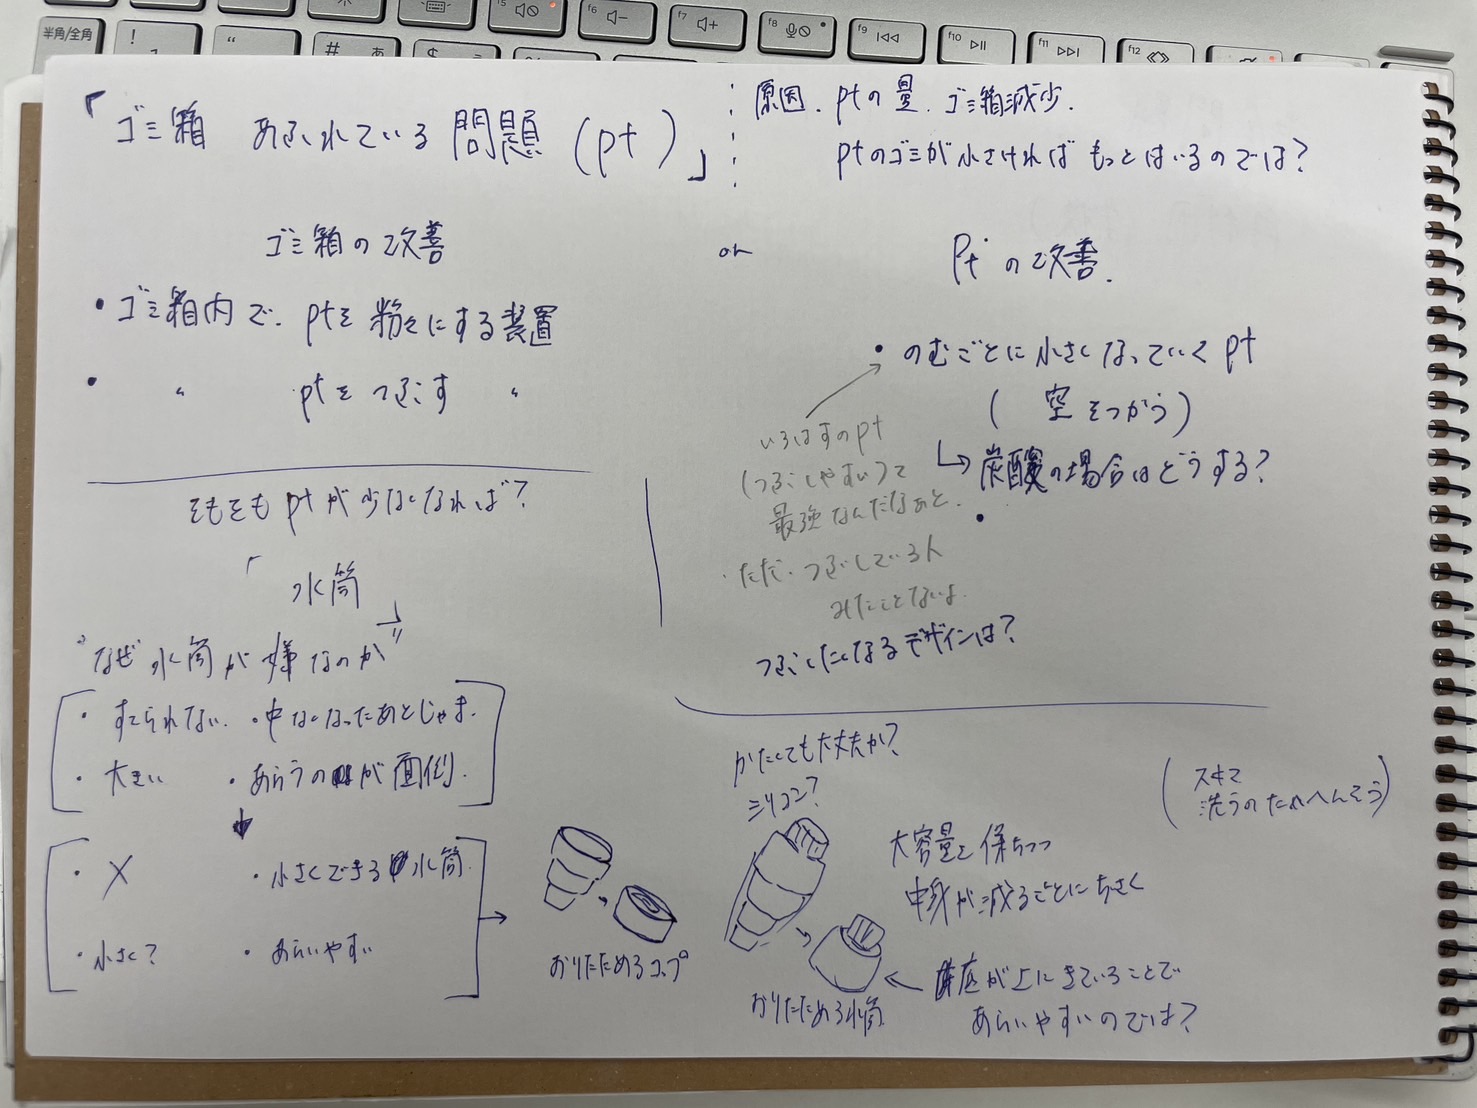 半角/全角
!
"
#
あ
$
f5
f6
f7
f8
f9
f10
f11
f12
「ゴミ箱 あふれている 問題 (pt)」
原因. ptの量. ゴミ箱減少.
ptのゴミが小さければ もっとはいるのでは?
ゴミ箱の改善
or
Ptの改善.
・ゴミ箱内で. ptを粉々にする装置
・ 〃 ptを つぶす 〃
・のむごとに小さくなっていくpt
( 空をつかう)
↳ 炭酸の場合はどうする?
・
いろはすのpt
(つぶしやすい)って
最強なんだなあと.
・ただ・つぶしている人
みたことないよ.
つぶしたくなるデザインは?
そもそも ptが少なくなれば?
「水筒」
"なぜ 水筒が嫌なのか"
・すてられない. ・中なくなったあとじゃま.
・大きい ・あらうのが面倒.
・× ・小さくできる水筒.
・小さく? ・あらいやすい
おりたためるコップ
かたくても大丈夫か?
シリコン?
おりたためる水筒
大容量を保ちつつ
中身が減るごとにちさく
底が上にきていることで
あらいやすいのでは?
(スキマ
洗うのたいへんそう)